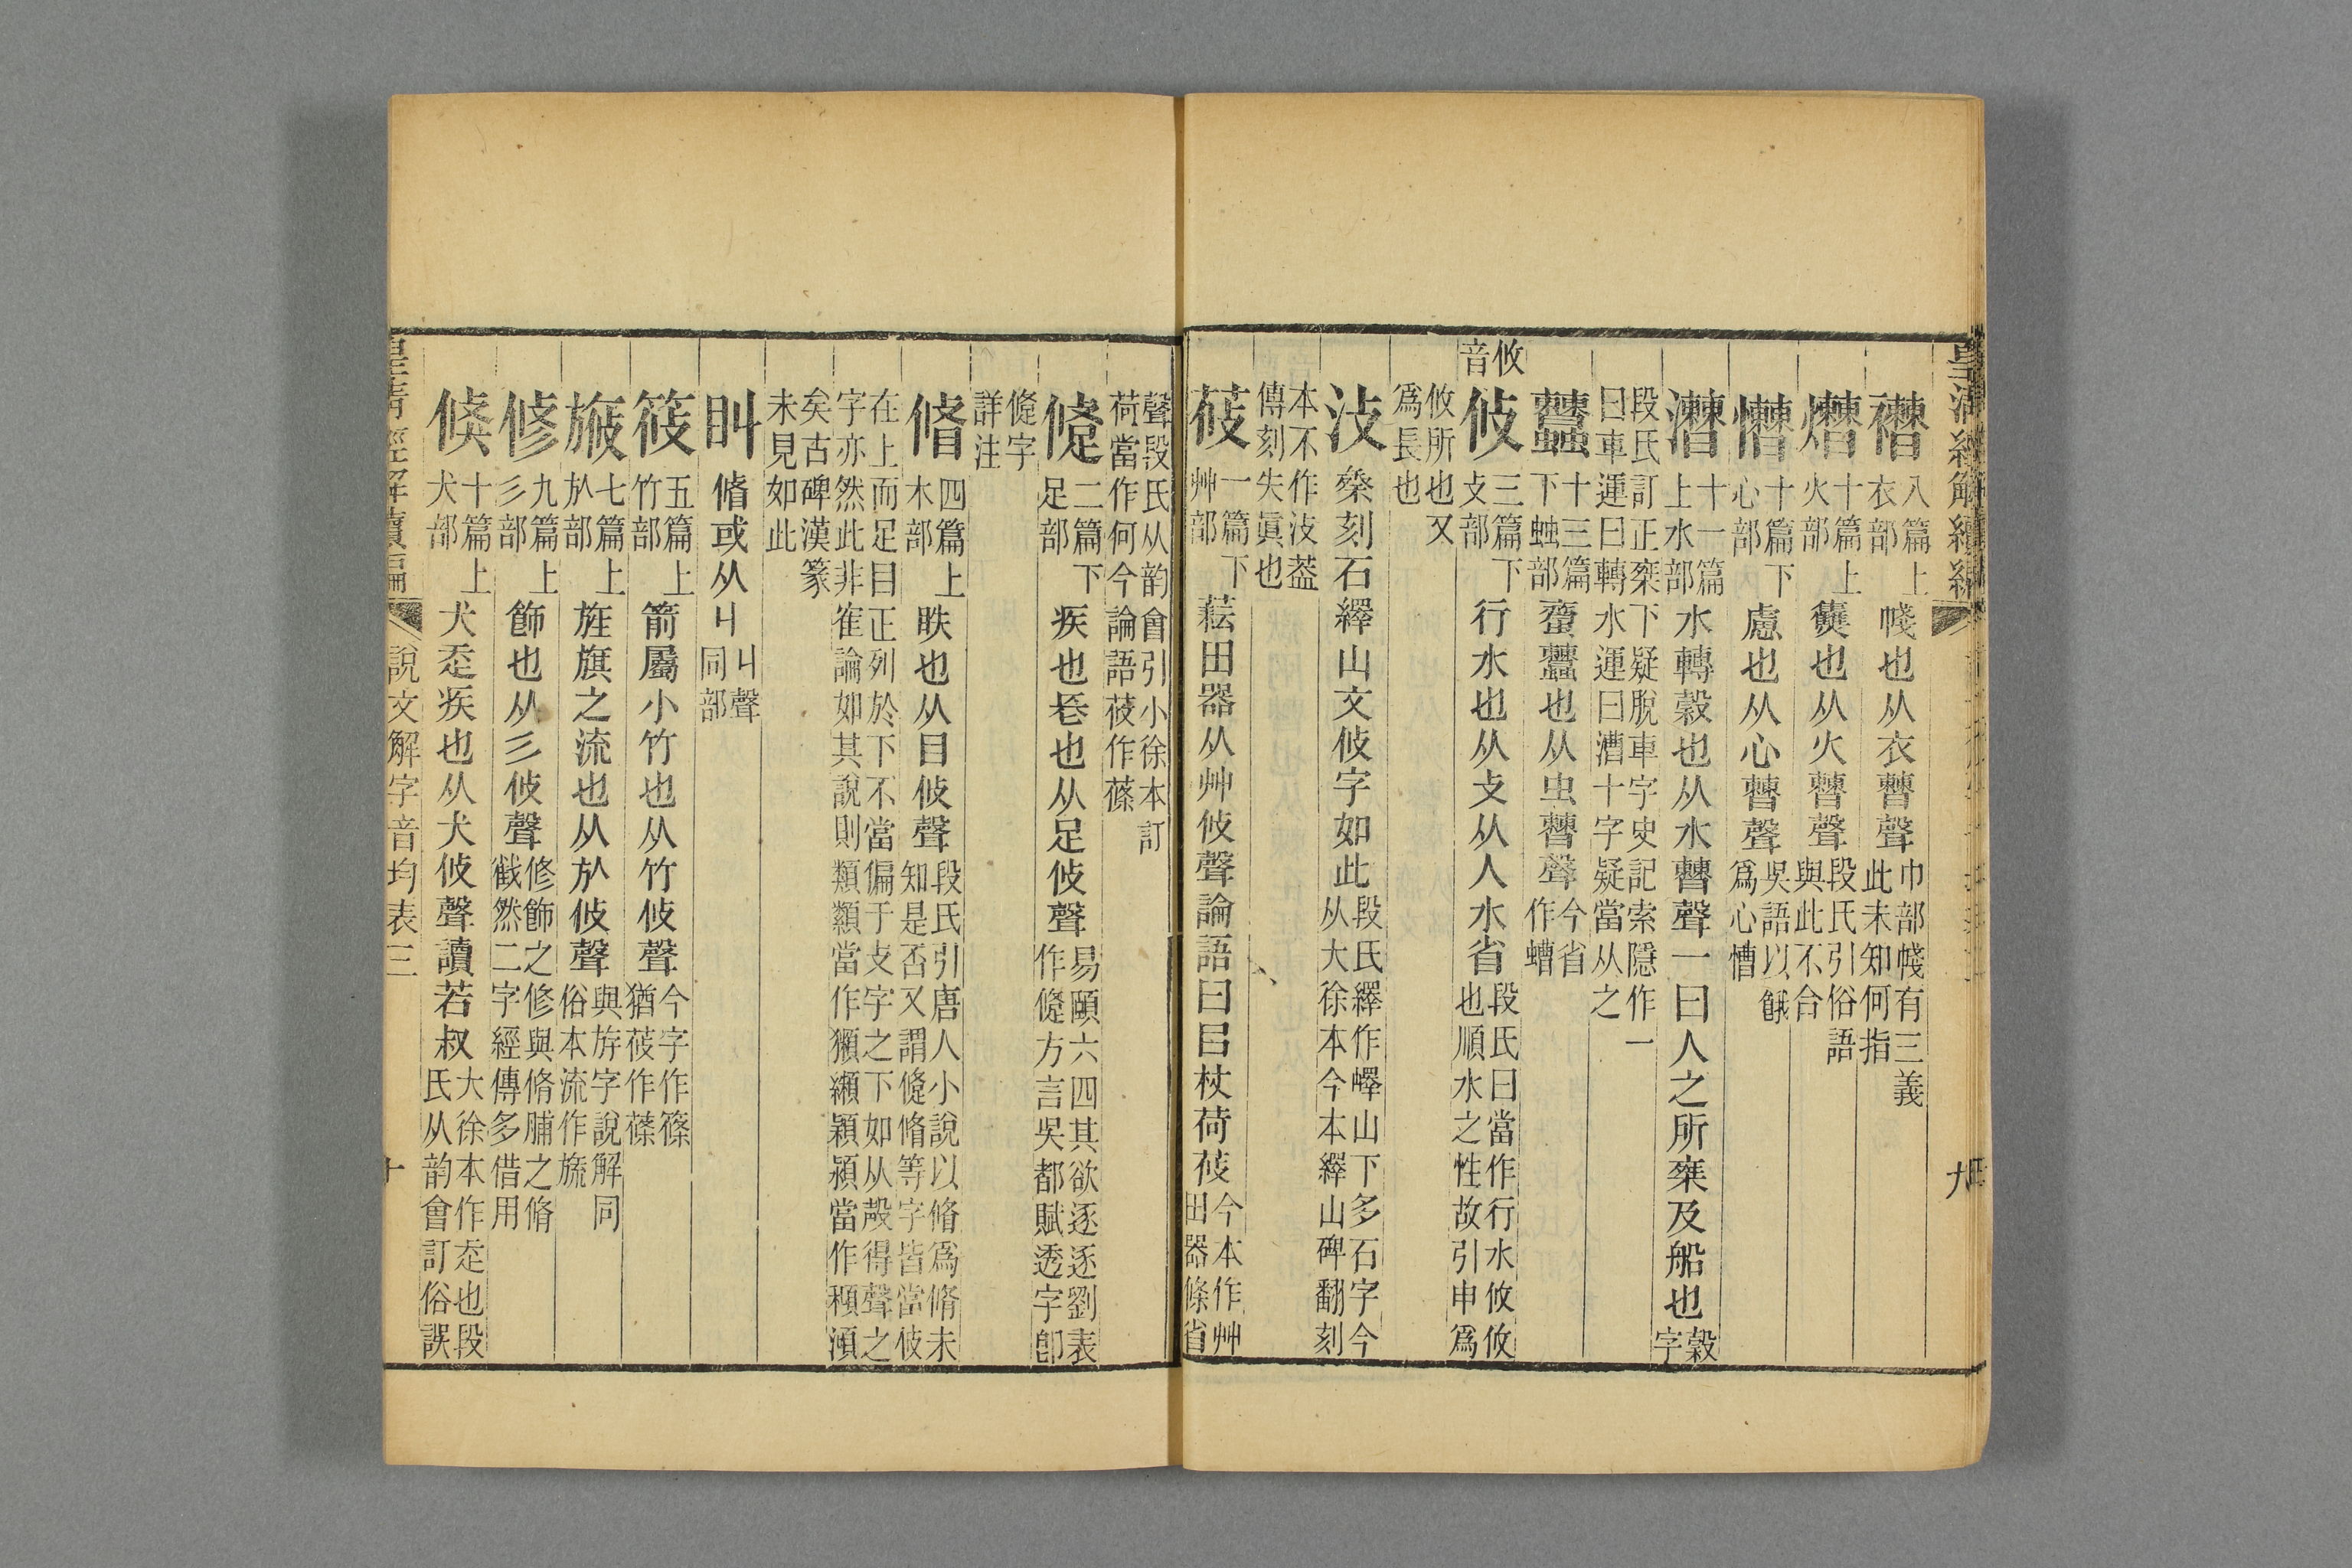 皇清經解續編
褿 八篇上衣部 帴也从衣𣍘聲 巾部帴有三義此未知何指
熷 十篇上火部 㷮也从火𣍘聲 段氏引俗語與此不合
慒 十篇下心部 慮也从心𣍘聲 吳語以餓爲心慒
漕 十一篇上水部 水轉穀也从水𣍘聲一曰人之所椉及船也 穀字
段氏訂正椉下疑脫車字史記索隱作一曰車運曰轉水運曰漕十字疑當从之
蠤 十三篇下䖵部 蠹蠤也从虫𣍘聲 今省作螬
攸音
攸 三篇下攴部 行水也从攴从人水省 段氏曰當作行水攸攸也順水之性故引申爲
攸所也又爲長也
汥 㮤刻石繹山文攸字如此 段氏繹作嶧山下多石字今从大徐本今本繹山碑翻刻
本不作汥葢傳刻失眞也
莜 一篇下艸部 䒳田器从艸攸聲論語曰㠯杖荷莜 今本作艸田器條省
聲段氏从韵會引小徐本訂荷當作何今論語莜作蓧
儵 二篇下足部 疾也長也从足攸聲 易頤六四其欲逐逐劉表作儵方言吳都賦透字卽
儵字詳注
脩 四篇上木部 眣也从目攸聲 段氏引唐人小說以脩爲脩未知是否又謂儵脩等字皆當攸
在上而足目正列於下不當偏于攴字之下如从殸得聲之字亦然此非隺論如其說則類纇當作獺纇潁熲當作穎湏
矣古碑漢篆未見如此
䀗 脩或从丩 丩聲同部
筱 五篇上竹部 箭屬小竹也从竹攸聲 今字作篠猶莜作蓧
旇 七篇上㫃部 旌旗之流也从㫃攸聲 與斿字說解同俗本流作旒
修 九篇上彡部 飾也从彡攸聲 修飾之修與脩脯之脩截然二字經傳多借用
倐 十篇上犬部 犬走疾也从犬攸聲讀若叔 大徐本作走也段氏从韵會訂俗誤
皇清經解續編 說文解字音均表三 十